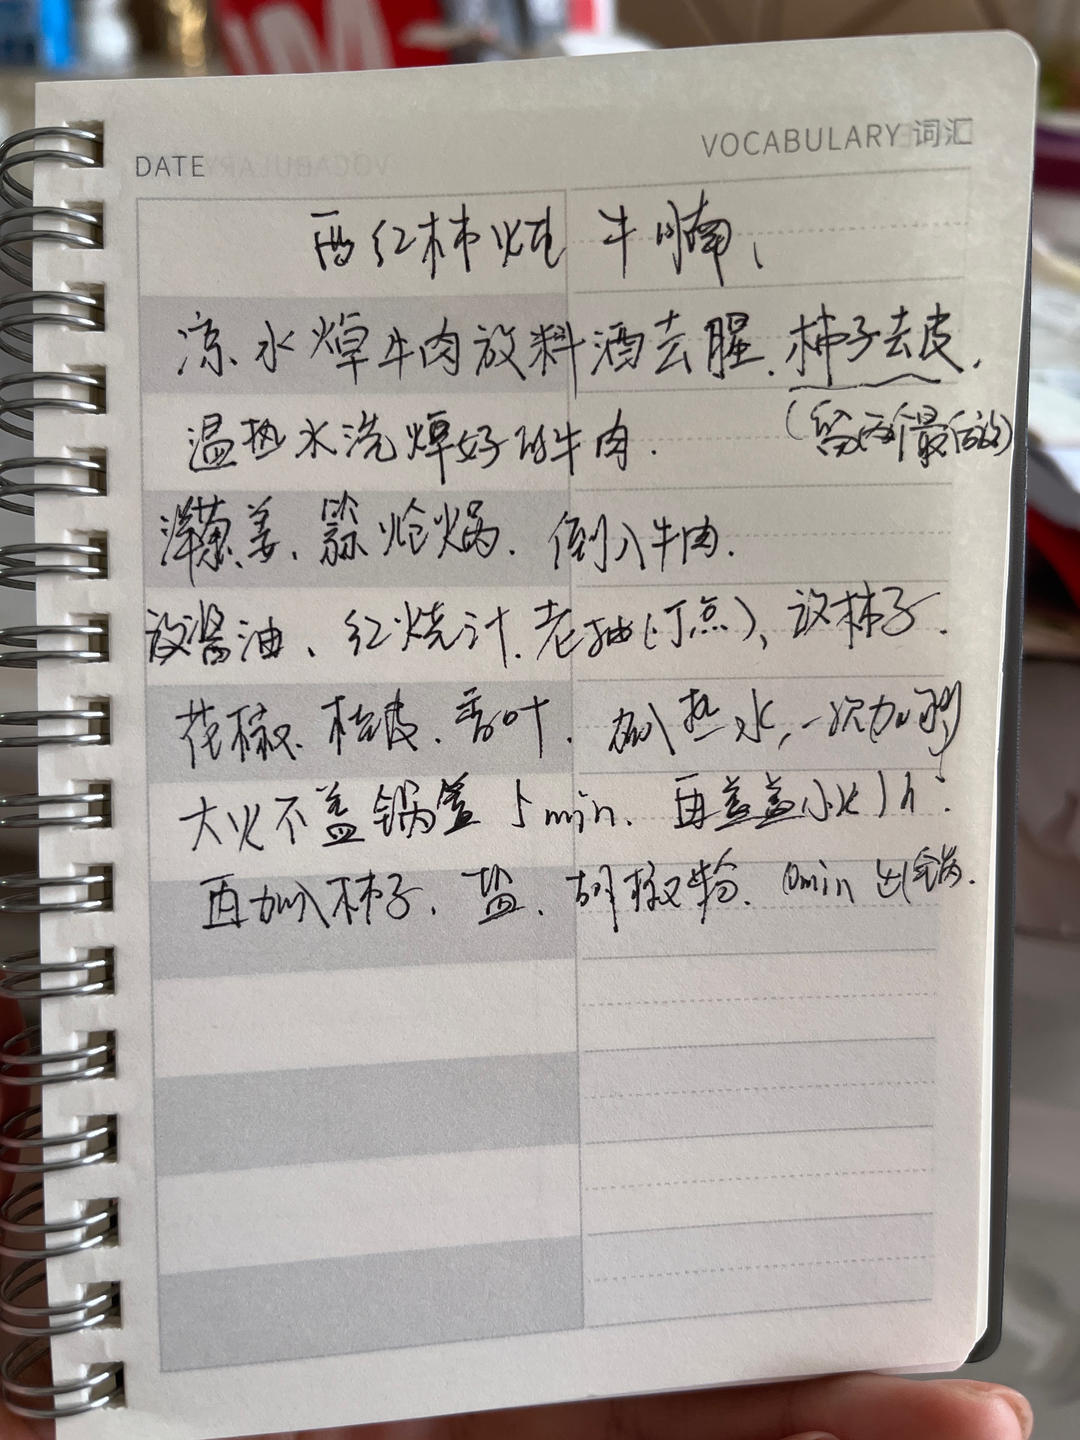 DATE
VOCABULARY 词汇
西红柿炖牛腩、
凉水焯牛肉放料酒去腥.柿子去皮.
(留两个最后放)
温热水洗焯好的牛肉.
洋葱、姜、蒜炝锅.倒入牛肉.
放酱油、红烧汁.老抽(一丁点)、放柿子.
花椒、桂皮.香叶.加入热水,一次加够
大火不盖锅盖5min、再盖盖小火1h.
再加入柿子.盐、胡椒粉.10min出锅.